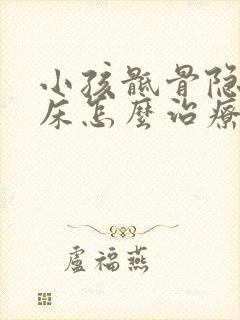 小孩骶骨隐
床怎麼治療
盧福燕